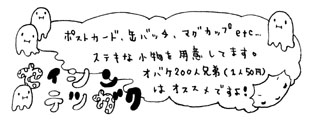 ポストカード、缶バッチ、マグカップ etc…
ステキな小物を用意してます。
オバケ200人兄弟(1人50円)
はオススメですよ!
テツガク